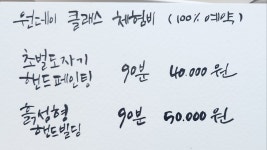 원데이 클래스 체험비 (100% 예약)
초벌도자기
핸드페인팅 90분 40.000원
흙성형 90분 50.000원
핸드빌딩